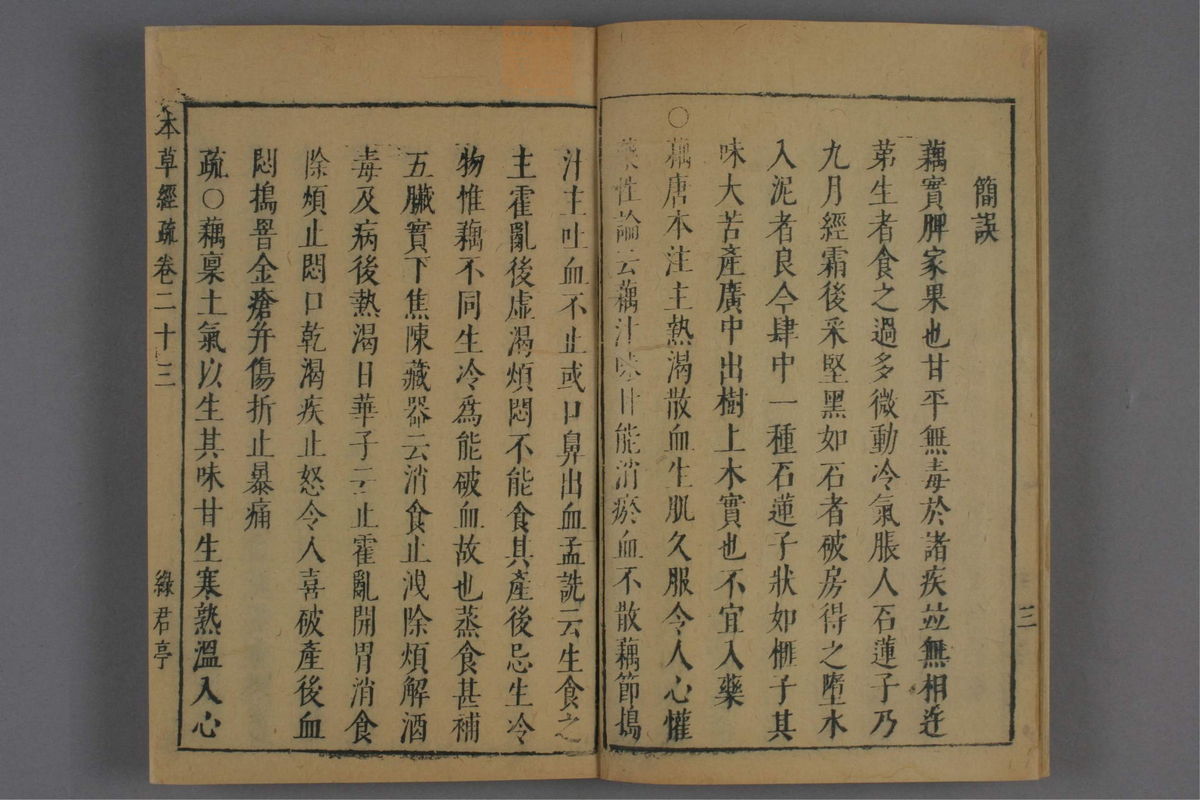 三
簡誤
藕實脾家果也甘平無毒於諸疾竝無相迕
苐生者食之過多微動冷氣脹人石蓮子乃
九月經霜後采堅黑如石者破房得之墮水
入泥者良今肆中一種石蓮子狀如榧子其
味大苦產廣中出樹上木實也不宜入藥
○藕唐本注主熱渴散血生肌久服令人心懽
藥性論云藕汁味甘能消瘀血不散藕節搗
汁主吐血不止或口鼻出血孟詵云生食之
主霍亂後虛渴煩悶不能食其產後忌生冷
物惟藕不同生冷爲能破血故也蒸食甚補
五臟實下焦陳藏器云消食止洩除煩解酒
毒及病後熱渴日華子云止霍亂開胃消食
除煩止悶口乾渴疾止怒令人喜破產後血
悶搗罯金瘡幷傷折止暴痛
疏○藕稟土氣以生其味甘生寒熟溫入心
本草經疏卷二十三
綠君亭